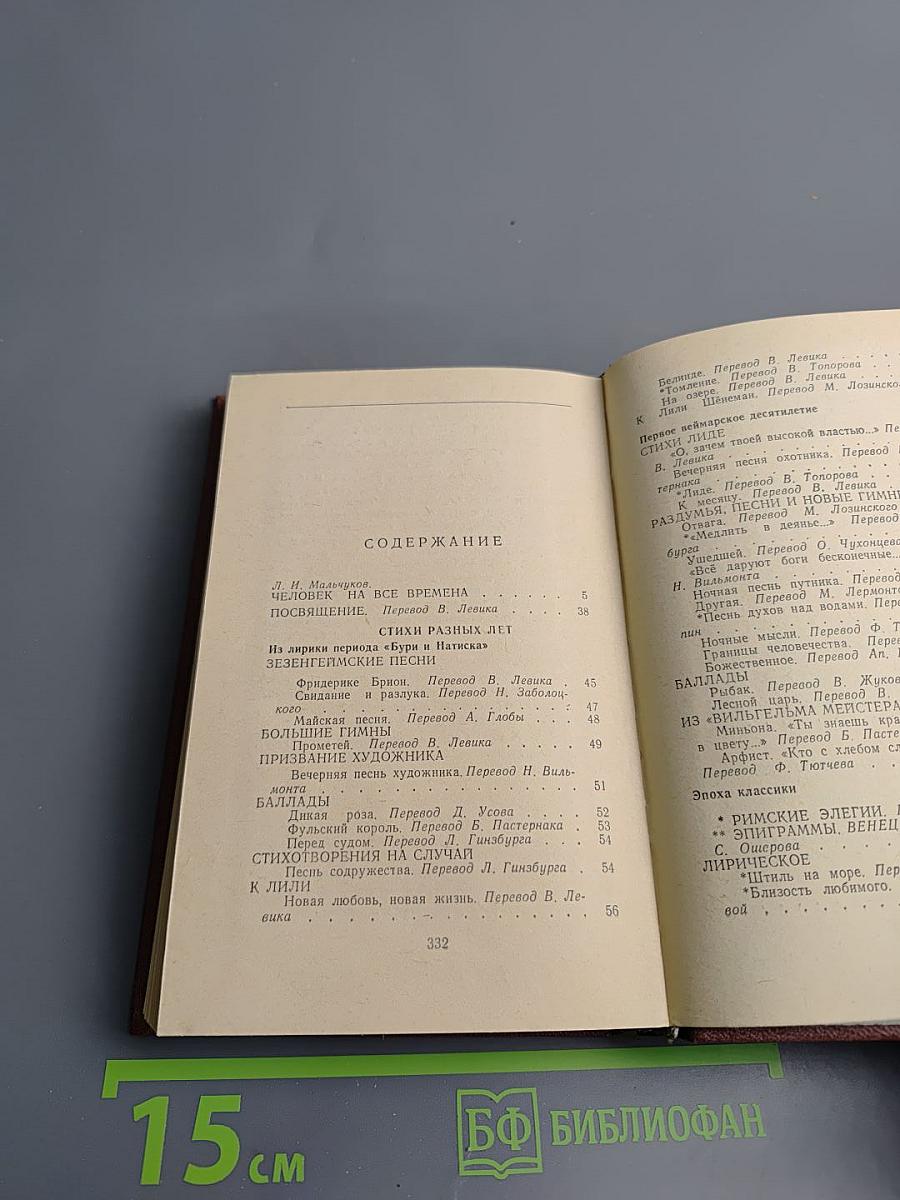 СОДЕРЖАНИЕ
Л. И. Мальчуков.
ЧЕЛОВЕК НА ВСЕ ВРЕМЕНА . . . . . . 5
ПОСВЯЩЕНИЕ. Перевод В. Левика . . . . 38
СТИХИ РАЗНЫХ ЛЕТ
Из лирики периода «Бури и Натиска»
ЗЕЗЕНГЕЙМСКИЕ ПЕСНИ
Фридерике Брион. Перевод В. Левика . 45
Свидание и разлука. Перевод Н. Заболоц-
кого . . . . . . . . . . . . . . . . 47
Майская песня. Перевод А. Глобы . . . 48
БОЛЬШИЕ ГИМНЫ
Прометей. Перевод В. Левика . . . . . 49
ПРИЗВАНИЕ ХУДОЖНИКА
Вечерняя песнь художника. Перевод Н. Виль-
монта . . . . . . . . . . . . . . . . 51
БАЛЛАДЫ
Дикая роза. Перевод Д. Усова . . . . 52
Фульский король. Перевод Б. Пастернака . 53
Перед судом. Перевод Л. Гинзбурга . . . 54
СТИХОТВОРЕНИЯ НА СЛУЧАЙ
Песнь содружества. Перевод Л. Гинзбурга . 54
К ЛИЛИ
Новая любовь, новая жизнь. Перевод В. Ле-
вика . . . . . . . . . . . . . . . . 56
332
Белинде. Перевод В. Левика . . . .
*Томление. Перевод В. Топорова . . .
На озере. Перевод В. Левика . . . .
К Лили Шёнеман. Перевод М. Лозинско
Первое веймарское десятилетие
СТИХИ ЛИДЕ
«О, зачем твоей высокой властью...» Пе
В. Левика . . . . . . . . . . . . .
Вечерняя песня охотника. Перевод
тернака . . . . . . . . . . . . . .
*Лиде. Перевод В. Топорова . . .
К месяцу. Перевод В. Левика . . .
РАЗДУМЬЯ, ПЕСНИ И НОВЫЕ ГИМН
Отвага. Перевод М. Лозинского
*«Медлить в деянье...» Перевод
бурга . . . . . . . . . . . . . . .
Ушедшей. Перевод О. Чухонцева
«Всё даруют боги бесконечные...
Н. Вильмонта . . . . . . . . . . .
Ночная песнь путника. Перевод
Другая. Перевод М. Лермонто
*Песнь духов над водами. Пере
пин . . . . . . . . . . . . . . . .
Ночные мысли. Перевод Ф. Т
Границы человечества. Перев
Божественное. Перевод Ап.
БАЛЛАДЫ
Рыбак. Перевод В. Жуков
Лесной царь. Перевод В.
ИЗ «ВИЛЬГЕЛЬМА МЕЙСТЕРА
Миньона. «Ты знаешь кра
в цвету...» Перевод Б. Пасте
Арфист. «Кто с хлебом сл
Перевод Ф. Тютчева . . .
Эпоха классики
* РИМСКИЕ ЭЛЕГИИ.
** ЭПИГРАММЫ. ВЕНЕЦ
С. Ошерова . . . . . . .
ЛИРИЧЕСКОЕ
*Штиль на море. Пер
*Близость любимого.
вой . . . . . . . . . .
15 см
БФ БИБЛИОФАН